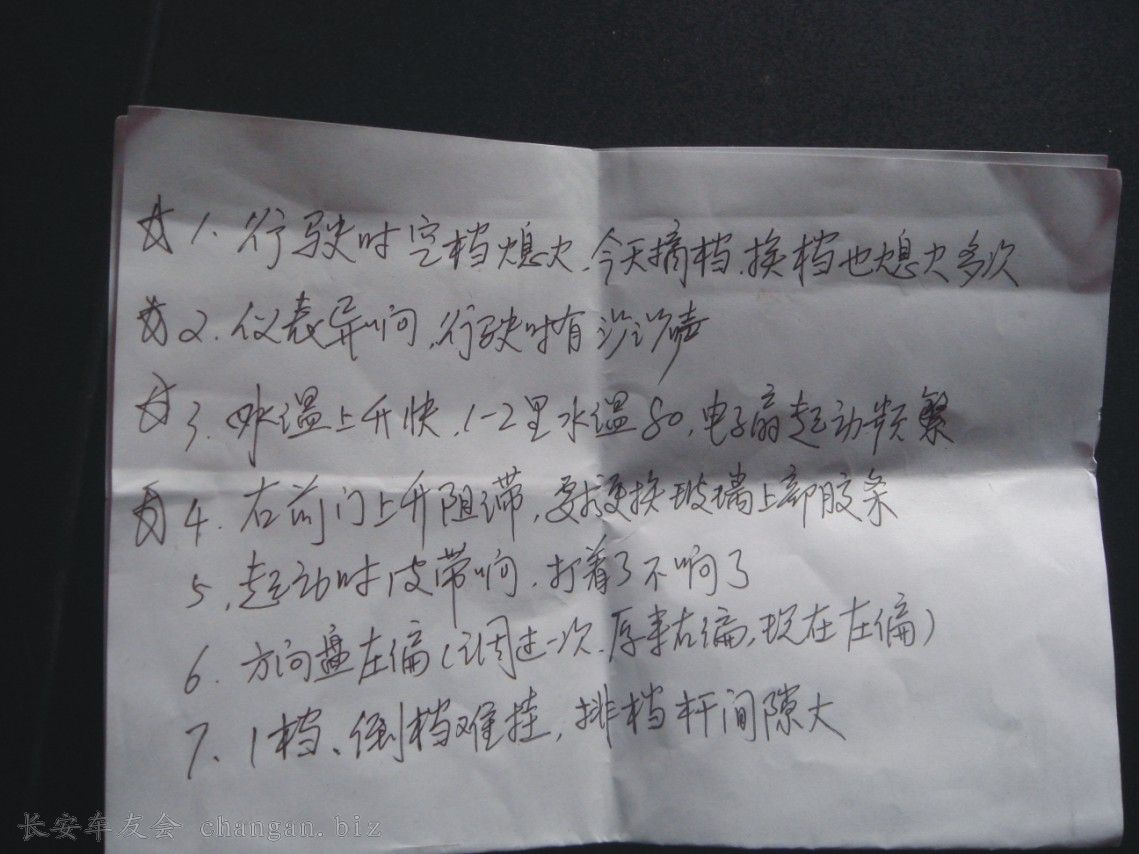 ☆1、行驶时空档熄火、今天摘档、换档也熄火多次
☆2、仪表异响,行驶时有沙沙声
☆3、水温上升快,1-2里水温80,电子扇起动频繁
☆4、右前门上升阻滞,要求更换玻璃上部胶条
5、起动时皮带响,打着了不响了
6、方向盘左偏(调过一次、原来右偏,现在左偏)
7、1档、倒档难挂,排档杆间隙大
长安车友会 changan.biz